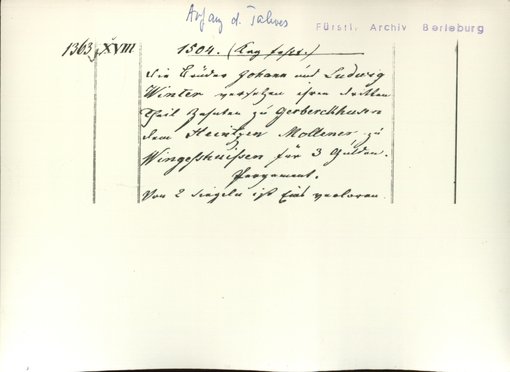 Anfang d. Jahres
Fürstl. Archiv Berleburg
1363, XVIII 1504. (Tag fehlt.)
Die Brüder Johann und Ludwig
Winter versetzen ihren dritten
Theil Zehnten zu Gerberckhusen
dem Heintzen Mollener zu
Wingeshuissen für 3 Gulden.
Pergament.
Von 2 Siegeln ist Eins verloren